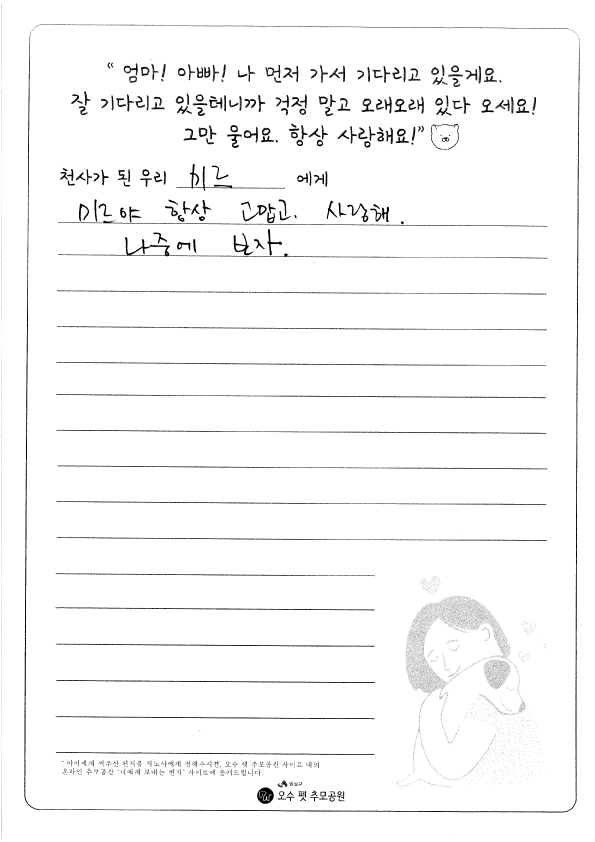 “ 엄마! 아빠! 나 먼저 가서 기다리고 있을게요.
잘 기다리고 있을테니까 걱정 말고 오래오래 있다 오세요!
그만 울어요. 항상 사랑해요!”
천사가 된 우리 미르 에게
미르야 항상 고맙고. 사랑해.
나중에 보자.
* 아이에게 적어주신 편지를 지도사에게 전해주시면, 오수 펫 추모공원 사이트 내의
온라인 추모공간 "너에게 보내는 편지" 사이트에 올려드립니다.
임실군
오수 펫 추모공원